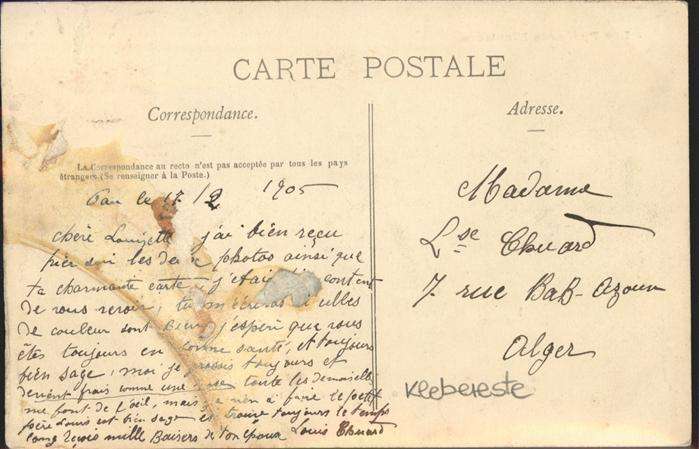 CARTE POSTALE
Correspondance.
Adresse.
La Correspondance au recto n'est pas acceptée par tous les pays
étrangers. (Se renseigner à la Poste.)
Pau le 17 /2 1905
chère Louisette j'ai bien reçu
hier soir les deux photos ainsi que
ta charmante carte j'étais content
de vous revoir, tu
de couleur sont j'espère que vous
êtes toujours en bonne santé, et toujours
bien sage, moi je grossis toujours et
devient frais comme une rose toute les demoiselles
me font de l'œil, mais rien à faire le petit
père Louis est bien sage et trouve toujours le temps
long reçois mille Baisers de ton époux Louis Chuard
Madame
Lse Chuard
7 rue Bab-Azoun
Alger
klebereste